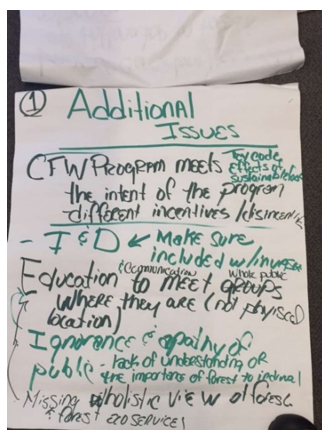 ① Additional
Issues
CFW Program meets Tax code
effects of
sustainable
the intent of the program
different incentives /disincentiv
- I & D ← Make sure
included w/invasive
Education & communication whole public
to meet groups
where they are (not physical
location)
Ignorance & apathy of
public - lack of understanding of
the importance of forest to
Missing wholistic view of forest
& forest eco services